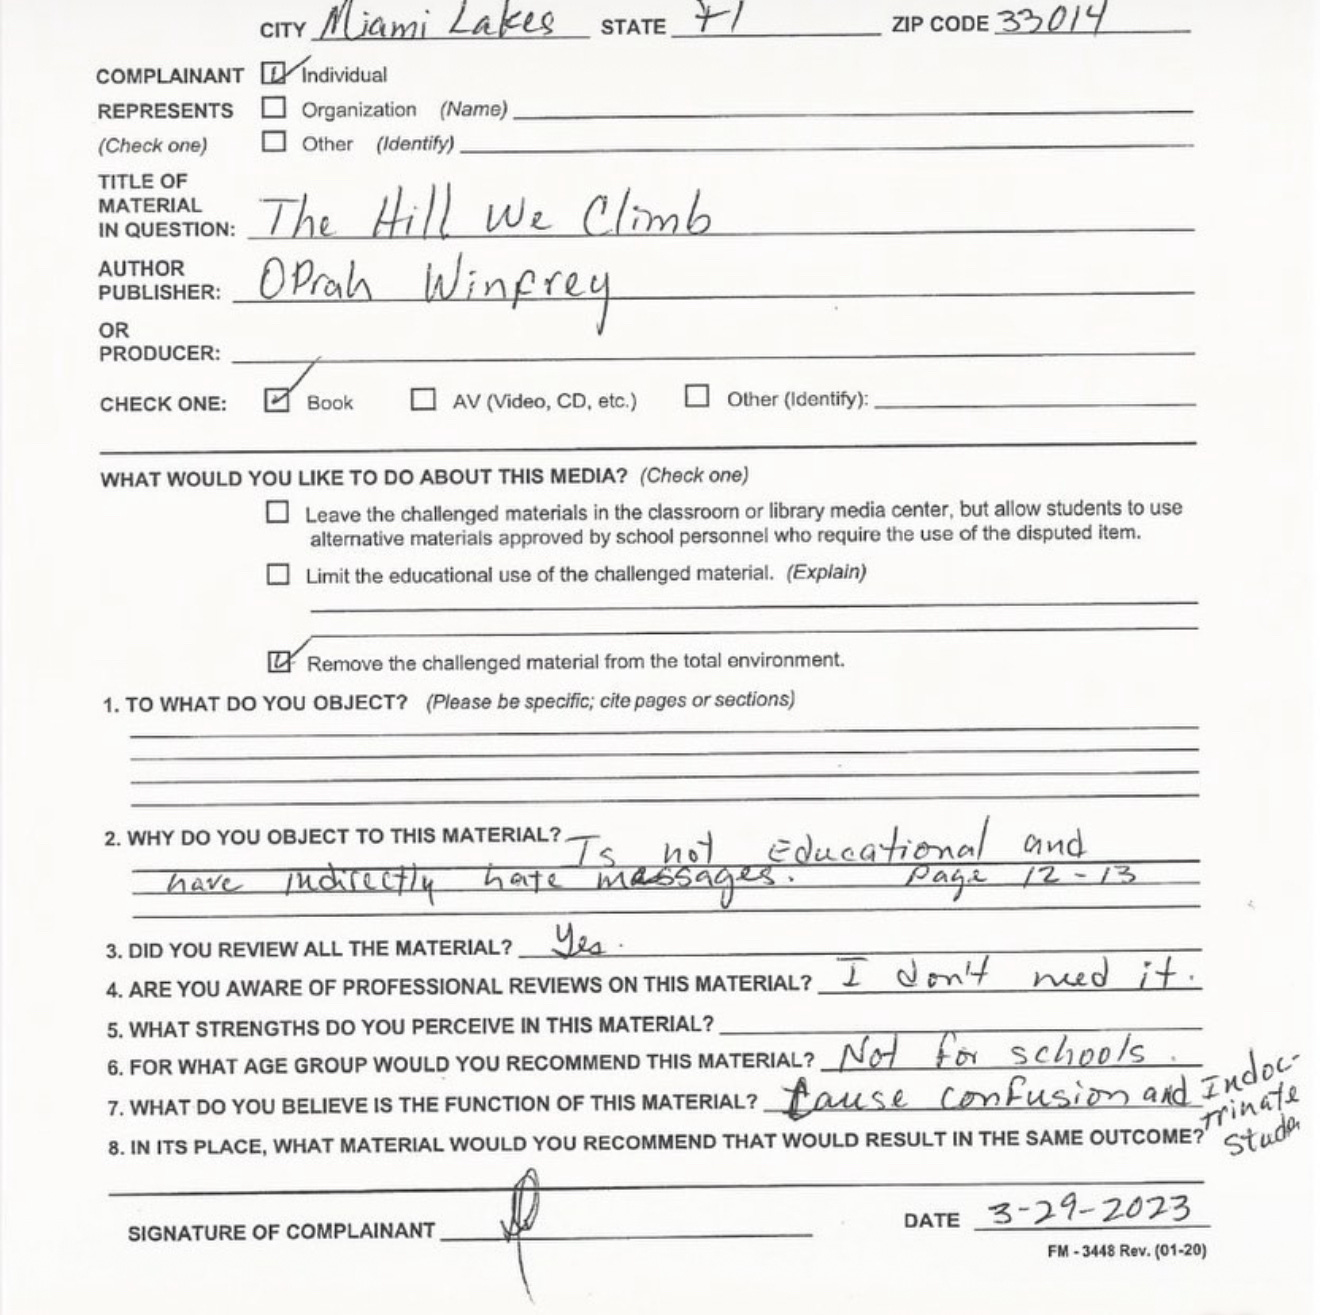 CITY Miami Lakes STATE Fl ZIP CODE 33014
COMPLAINANT Individual
REPRESENTS Organization (Name)
(Check one) Other (Identify)
TITLE OF
MATERIAL
IN QUESTION: The Hill We Climb
AUTHOR
PUBLISHER: OPrah Winfrey
OR
PRODUCER:
CHECK ONE: Book AV (Video, CD, etc.) Other (Identify):
WHAT WOULD YOU LIKE TO DO ABOUT THIS MEDIA? (Check one)
Leave the challenged materials in the classroom or library media center, but allow students to use
alternative materials approved by school personnel who require the use of the disputed item.
Limit the educational use of the challenged material. (Explain)
Remove the challenged material from the total environment.
1. TO WHAT DO YOU OBJECT? (Please be specific; cite pages or sections)
2. WHY DO YOU OBJECT TO THIS MATERIAL? Is not Educational and
have indirectly hate massages. Page 12-13
3. DID YOU REVIEW ALL THE MATERIAL? Yes.
4. ARE YOU AWARE OF PROFESSIONAL REVIEWS ON THIS MATERIAL? I don't need it.
5. WHAT STRENGTHS DO YOU PERCEIVE IN THIS MATERIAL?
6. FOR WHAT AGE GROUP WOULD YOU RECOMMEND THIS MATERIAL? Not for schools.
7. WHAT DO YOU BELIEVE IS THE FUNCTION OF THIS MATERIAL? Cause confusion and Indoc-
trinate
8. IN ITS PLACE, WHAT MATERIAL WOULD YOU RECOMMEND THAT WOULD RESULT IN THE SAME OUTCOME?
SIGNATURE OF COMPLAINANT DATE 3-29-2023
FM - 3448 Rev. (01-20)